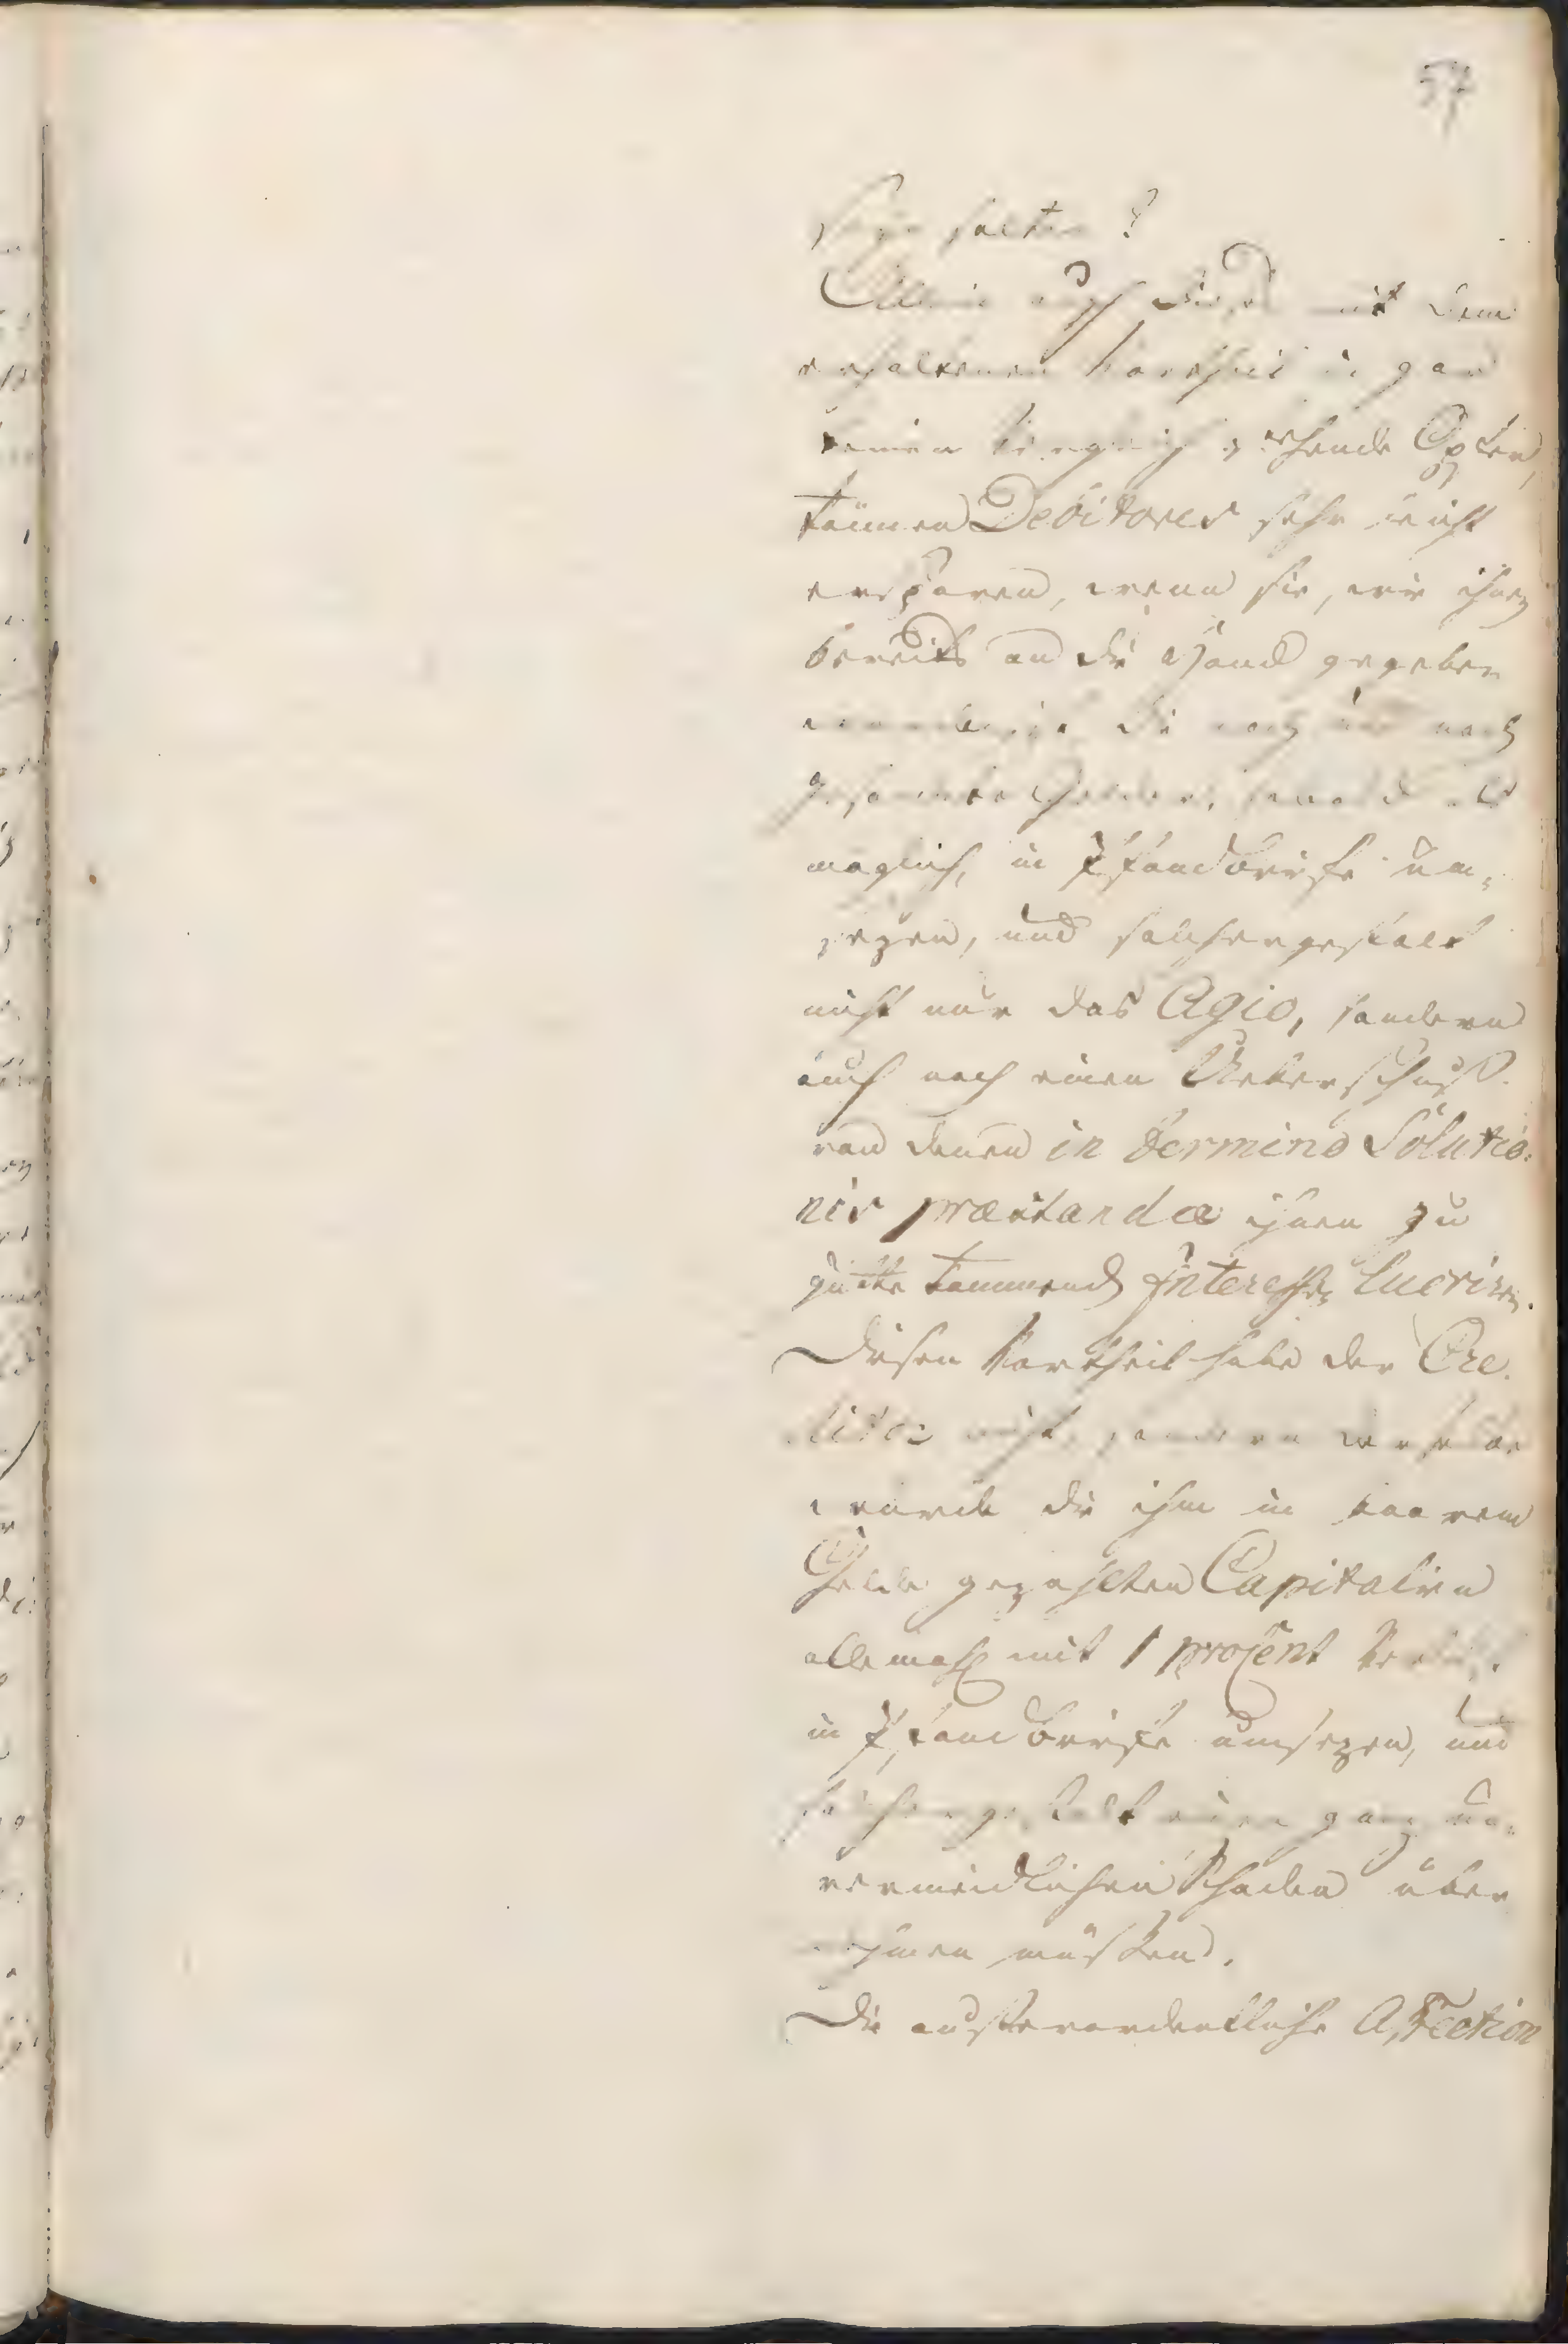 57
solten?
Allein auch dieses mit dem
erhaltenen Vortheil in gar
keinen Vergleich stehende Opfer,
können Debitores sehr leicht
ersparen, wenn sie, wie ihnen
bereits an die Hand gegeben
worden, die nach und nach
gesamelte Gelder, sobald als
möglich, in Pfandbriefe um-
sezen, und solchergestalt
nicht nur das Agio, sondern
auch noch einen Ueberschuß
von denen in termino Solutio-
nis præstandæ ihnen zu
gutte kommend Interessen lucriren.
Diesen Vortheil habe der Cre-
ditor nicht, sondern derselbe
würde die ihm in baarem
Gelde gezahlten Capitalien
allemahl mit 1 proCent Verlust
in Pfandbriefe umsezen, und
solchergestalt einen ganz un-
vermeidlichen Schaden über
nehmen müssen.
Die ausserordentliche Affection